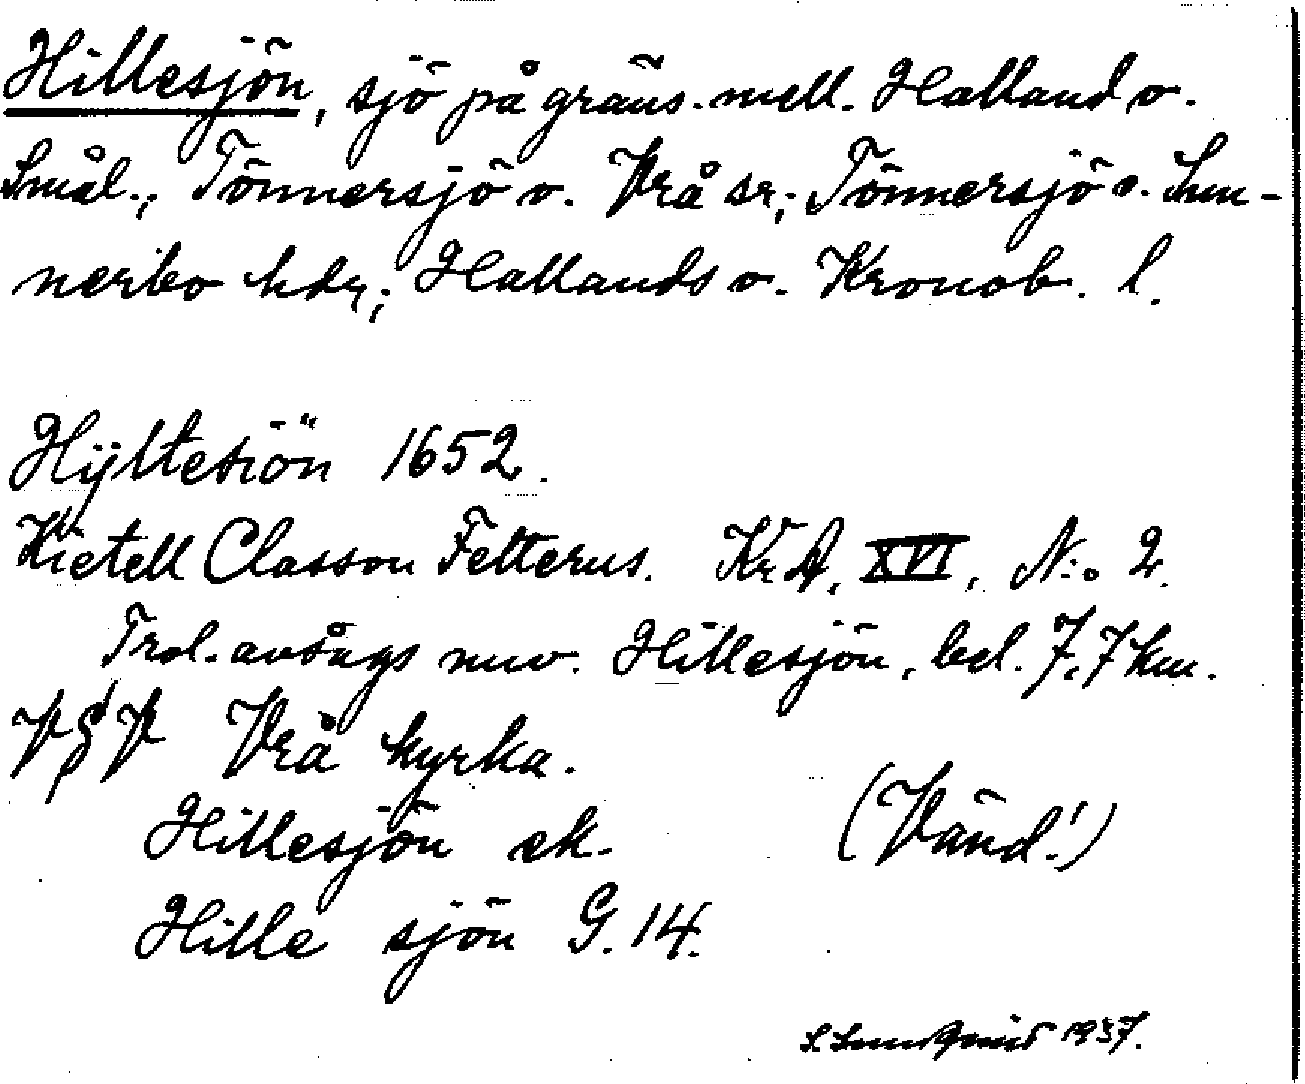 Hillesjön, sjö på gräns. mell. Halland o.
Smål., Tönnersjö o. Vrå sr; Tönnersjö o. Sun-
nerbo hdr; Hallands o. Kronob. l.
Hÿltesiön 1652.
Kietell Classon Felterus. KrA, XVI, N:o 2.
Trol. avsågs nuv. Hillesjön, bel. 7,7 km.
V § V Vrå kyrka.
Hillesjön ek.
(Vänd!)
Hille sjön G. 14.
S. Lundqvist 1937.